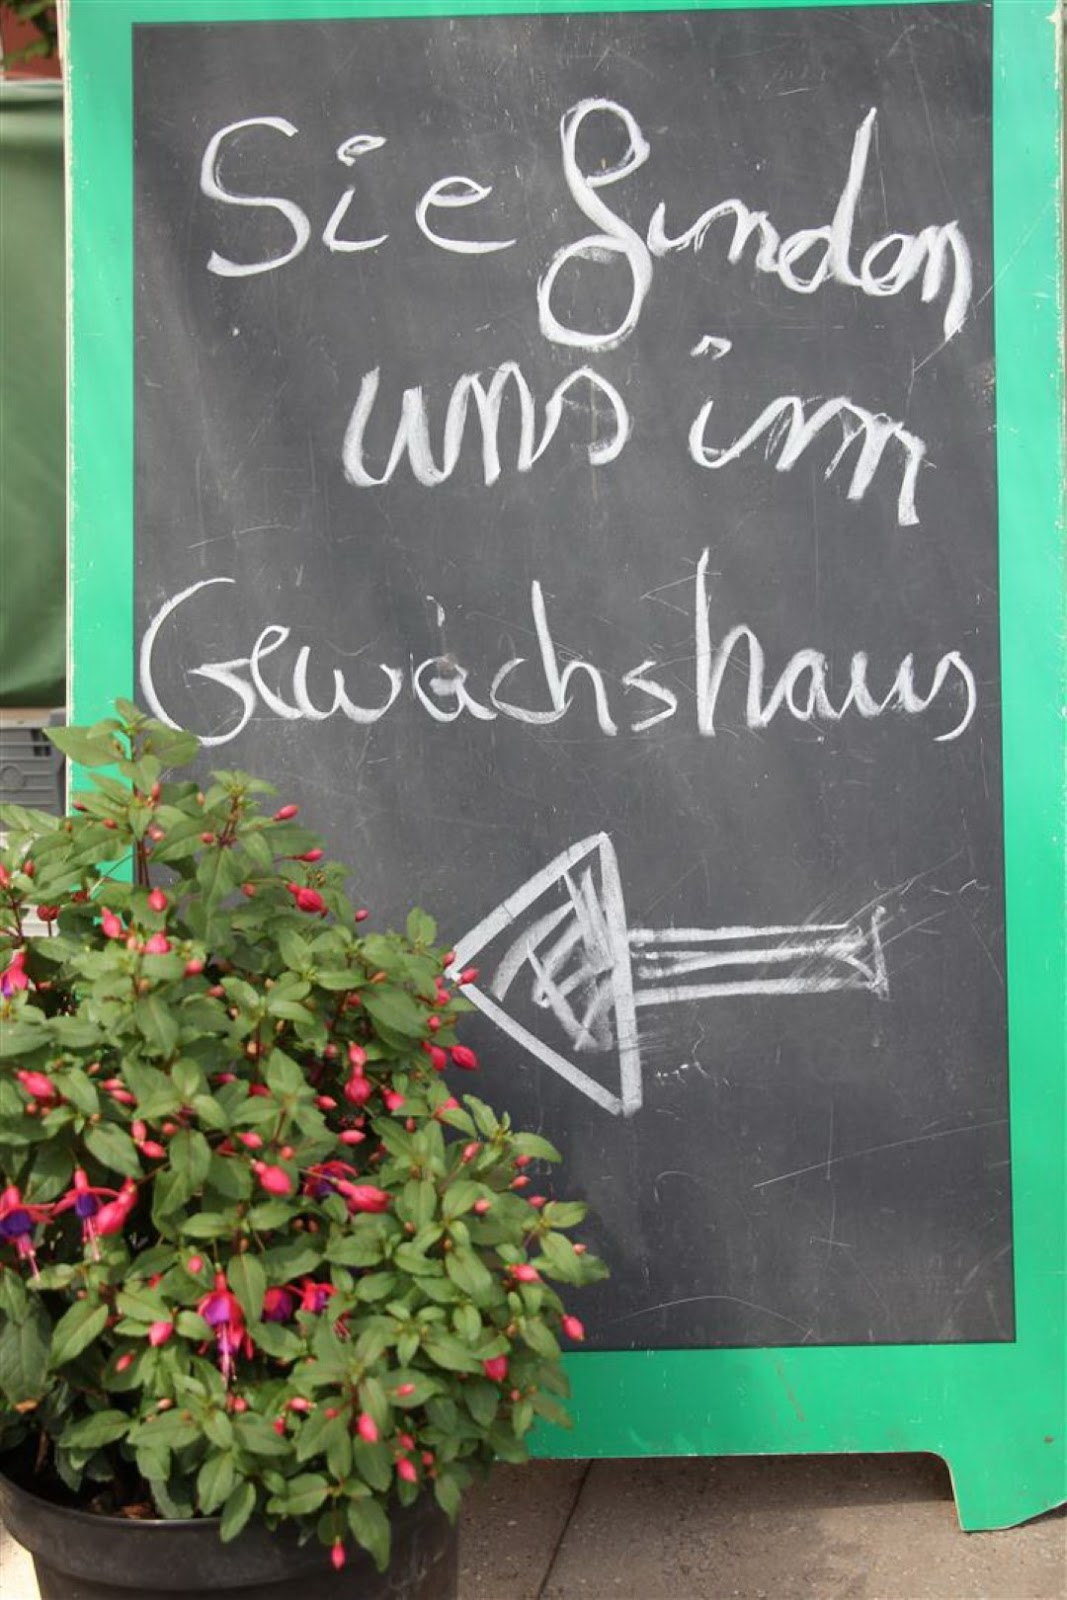 Sie finden
uns im
Gewächshaus